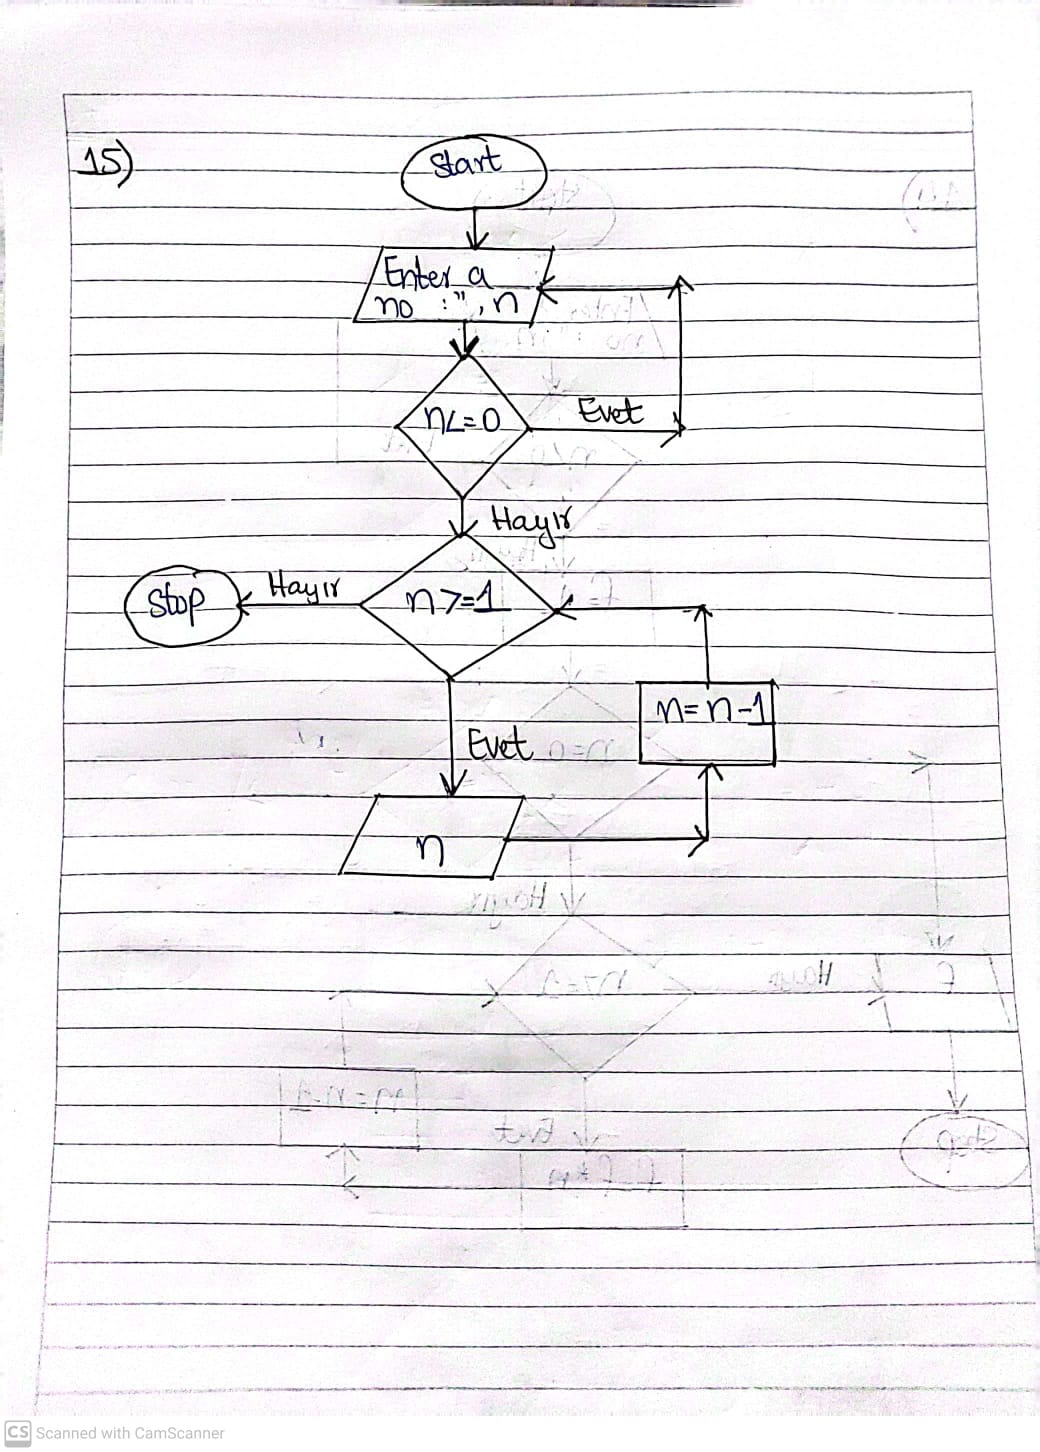 15)
Start
Enter a
no :", n
n<=0
Evet
Hayır
n>=1
Hayır
Stop
Evet
n=n-1
n
CS Scanned with CamScanner